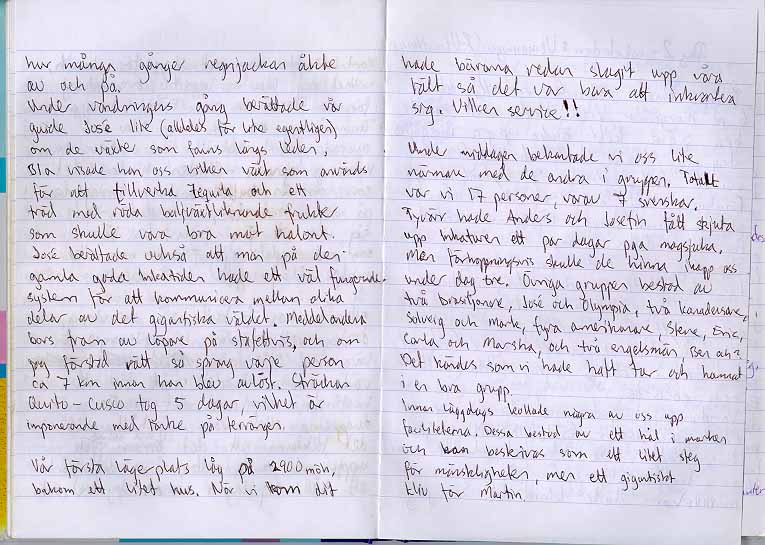 hur många gånger regnjackan åkte
av och på.
Under vandringens gång berättade vår
guide José lite (alldeles för lite egentligen)
om de växter som fanns längs leden.
Bla visade han oss vilken växt som används
för att tillverka Tequila och ett
träd med röda baljväxtliknande frukter
som skulle vara bra mot halont.
José berättade också att man på den
gamla goda Inkatiden hade ett väl fungerande
system för att kommunicera mellan olika
delar av det gigantiska väldet. Meddelandena
bars fram av löpare på stafettvis, och om
jag förstod rätt så sprang varje person
ca 7 km innan han blev avlöst. Sträckan
Quito - Cusco tog 5 dagar, vilket är
imponerande med tanke på terrängen.
Vår första lägerplats låg på 2900 möh,
bakom ett litet hus. När vi kom dit
hade bärarna redan slagit upp våra
tält så det var bara att inkvartera
sig. Vilken service!!
Under middagen bekantade vi oss lite
närmare med de andra i gruppen. Totalt
var vi 17 personer, varav 7 svenskar.
Tyvärr hade Anders och Josefin fått skjuta
upp inkaturen ett par dagar pga magsjuka,
men förhoppningsvis skulle de hinna ikapp oss
under dag tre. Övriga gruppen bestod av
två brasiljanare, José och Olympia, två kanadensare,
Solveig och Mark, fyra amerikanare Steve, Eric,
Carla och Marsha, och två engelsmän, Ben och ?
Det kändes som vi hade haft tur och hamnat
i en bra grupp.
Innan läggdags kollade några av oss upp
faciliteterna. Dessa bestod av ett hål i marken
och kan beskrivas som ett litet steg
för mänskligheten, men ett gigantiskt
kliv för Martin.